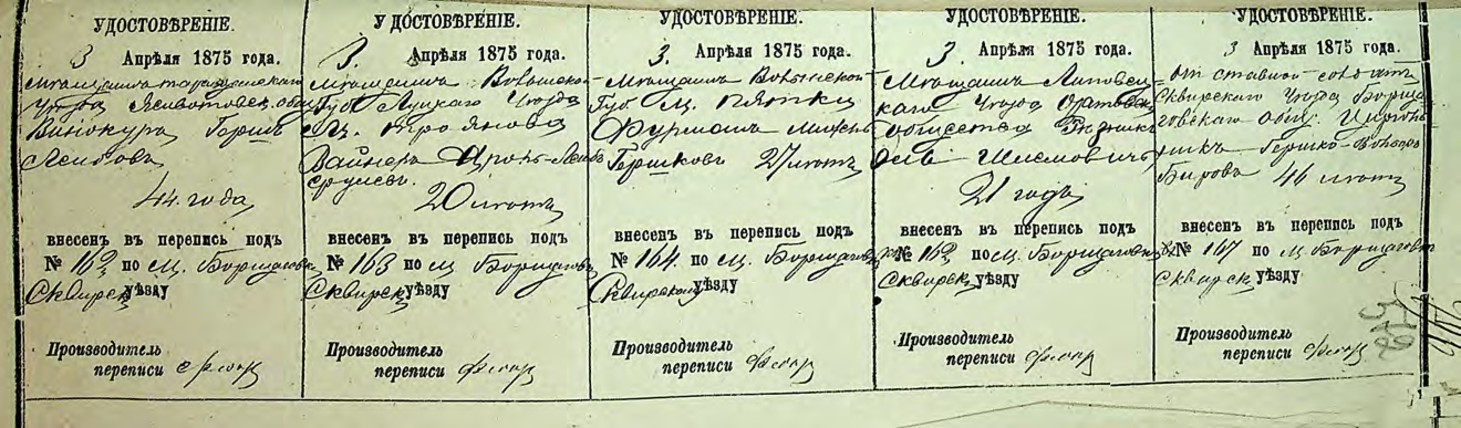 УДОСТОВѢРЕНІЕ.
3 Апрѣля 1875 года.
Мѣщанинъ Таращанскаго
Уѣзда
Винокуръ Гершъ
Лейбовъ
44 года
внесенъ въ перепись подъ
№ по м. Борщаговк
Сквирск уѣзду
Производитель
переписи
УДОСТОВѢРЕНІЕ.
3. Апрѣля 1875 года.
Мѣщанинъ Волынской
Губ Луцкаго Уѣзда
М. Троянова
Вайнеръ Лейб
Сруле
20 лѣтъ
внесенъ въ перепись подъ
№ 163 по м Борщаговк
Сквирск уѣзду
Производитель
переписи
УДОСТОВѢРЕНІЕ.
3. Апрѣля 1875 года.
Мѣщанинъ Волынской
Губ. М. Пятки
Фурманъ
Гершковъ 27 лѣтъ
внесенъ въ перепись подъ
№ 164. по м. Борщаговк
Сквирскому уѣзду
Производитель
переписи
УДОСТОВѢРЕНІЕ.
3 Апрѣля 1875 года.
Мѣщанинъ Липовец
каго Уѣзда Оратовск
общества
Шлемовичъ
21 годъ
внесенъ въ перепись подъ
№ по м. Борщаговк
Сквирск уѣзду
Производитель
переписи
УДОСТОВѢРЕНІЕ.
3 Апрѣля 1875 года.
Отставной солдатъ
Сквирскаго Уѣзда Борща
говскаго общ.
Гершко-Вольфъ
Беровъ 46 лѣтъ
внесенъ въ перепись подъ
№ 167 по м. Борщаговк
Сквирск уѣзду
Производитель
переписи